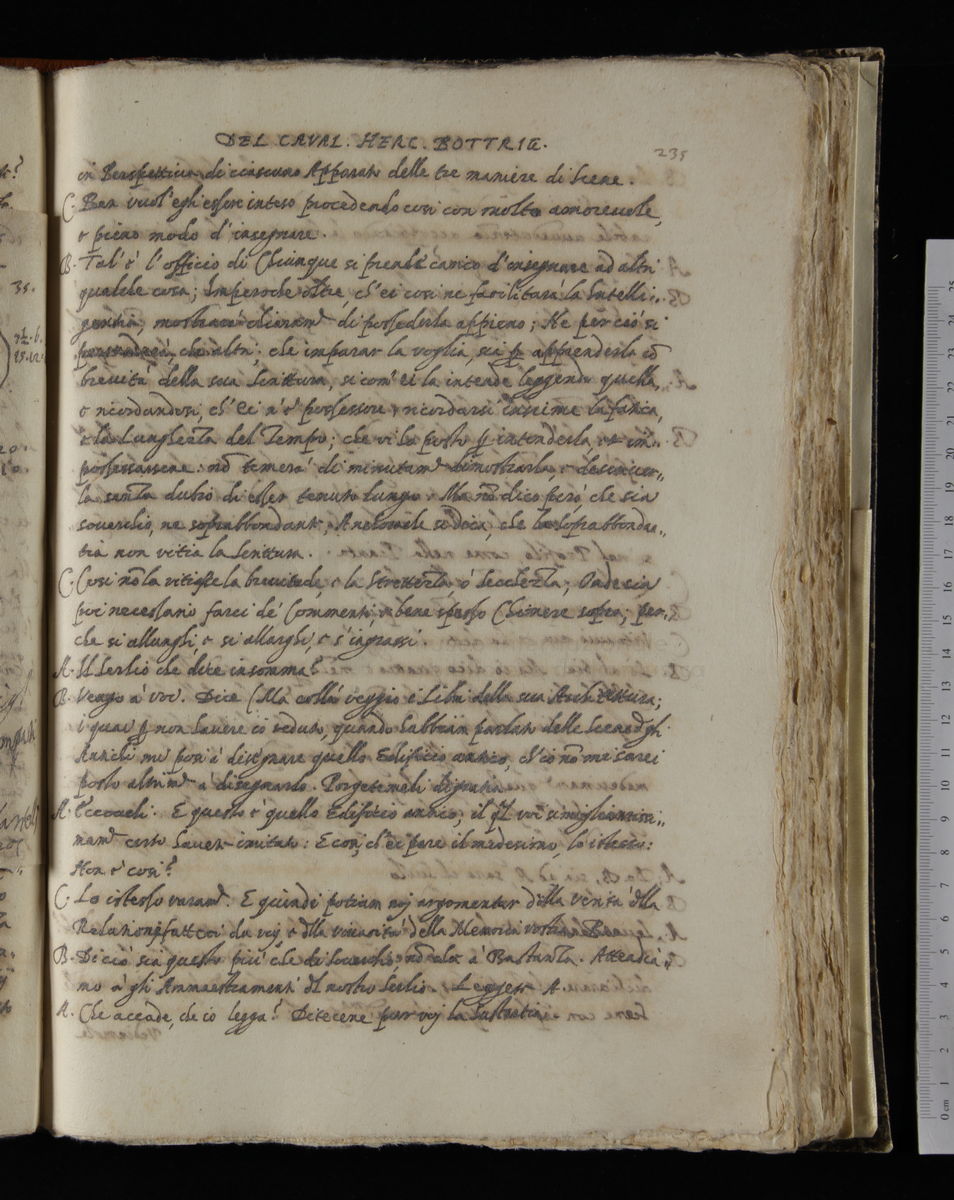 DEL CAVAL. HERC. BOTTRIG.
235
in Perspettiva di ciascuno Apparato delle tre maniere di Scene.
C. Ben vuol' egli essere inteso procedendo così con molto amorevole,
e pieno modo d'insegnare.
B. Tal' è l'officio di Chiunque si prende carico d'insegnare ad altri
qualche cosa; Imperoche oltre, ch'ei così ne facilitarà la Intelli..
genzia, mostrarà chiaram.te di possederla appieno; Ne perciò si
persuaderà, che altri, che imparar la voglia, sia p apprenderla cō
brevità della sua Scrittura, si com' ei la intende leggendo quella,
e ricordandosi, ch' Ei n'è possessore, ricordarsi insieme la fatica,
e la Lunghezza del Tempo; che vi ha posto p intenderla et im..
possessarsene: nō temerà di minutam.te dimostrarla e descriver..
la senza dubio di esser tenuto lungo. Ma nō dico però che sia
soverchio, ne soprabbondante, che la soprabbondan..
tia non vitia la Scrittura.
C. Così nō la vitiasse la brevitade, e la Strettezza, ò Secchezza; Onde sia
poi necessario farci de' Commenti, e bene spesso Chimere sopra; per..
che si allunghi e si allarghi, e s'ingrassi.
A. Il Serlio che dice insomma?
B. Vengo à voi. Dice (Ma colà veggio i Libri della sua Architettura;
i quai p non havere io veduti, quando habbiam parlato delle Scene d gli
Antichi mi posi à disegnare quello Edificio antico, ch'io nō mi sarei
posto altrim.te à disegnarlo. Porgetemeli Digratia
A. Eccoveli. E questo è quello Edificio antico, il ql voi simigliantissi..
mam.te certo havete imitato: E con, ch'ei pare il medesimo, lo istesso:
Non è così?
C. Lo istesso veram.te. E quindi potiam noi argomentar della verità dlla
Relatione fattaci da voi, e dlla vivacità della Memoria vostra.
B. Di ciò sia questo più che di soverchio, nō che à Bastanza. Attendia..
mo à gli Ammaestramenti dl nostro Serlio. Leggete A.
A. Che accade, ch'io legga? Ditecene pur voi la Sustantia.